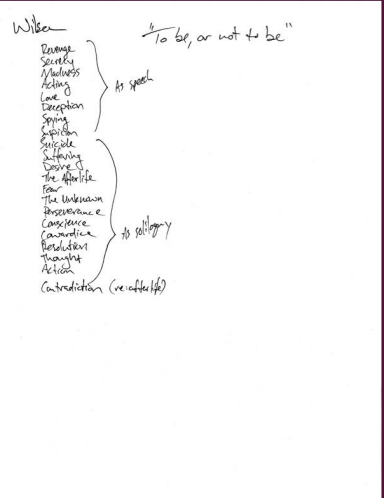 Wilson
"To be, or not to be"
Revenge
Secrecy
Madness
Acting
Love
Deception
Spying
Suspicion
As speech
Suicide
Suffering
Desire
The Afterlife
Fear
The Unknown
Perseverance
Conscience
Cowardice
Resolution
Thought
Action
As soliloquy
Contradiction (re: afterlife)